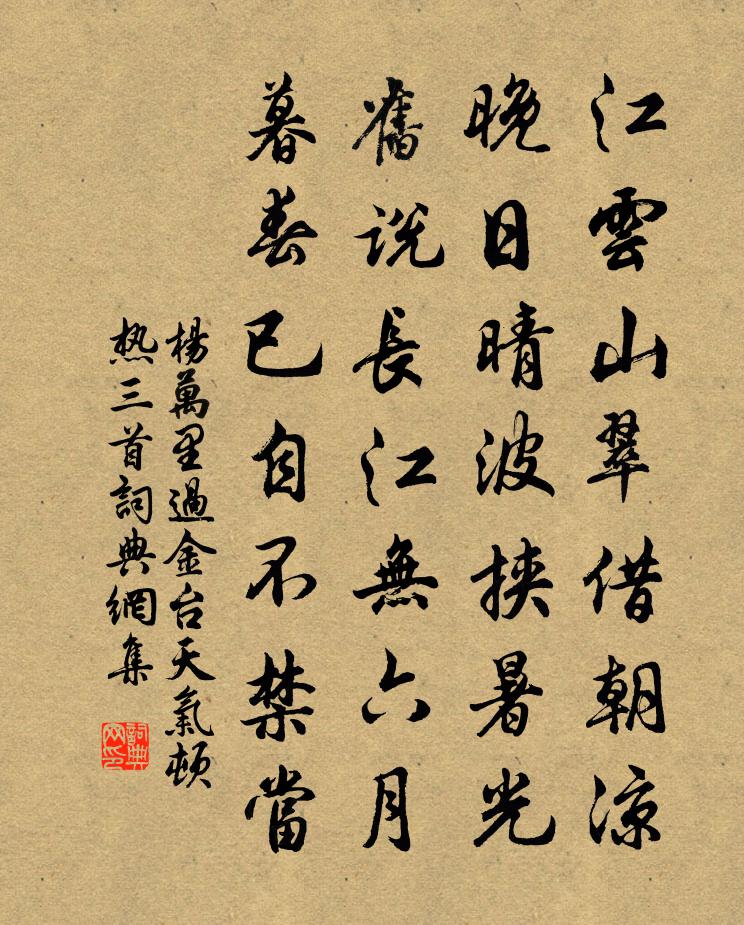 江雲山翠借朝凉
晚日晴波挾暑光
舊説長江無六月
暮春已自不禁當
楊萬里過金台天氣頓
热三首詞典網集
詞典网印